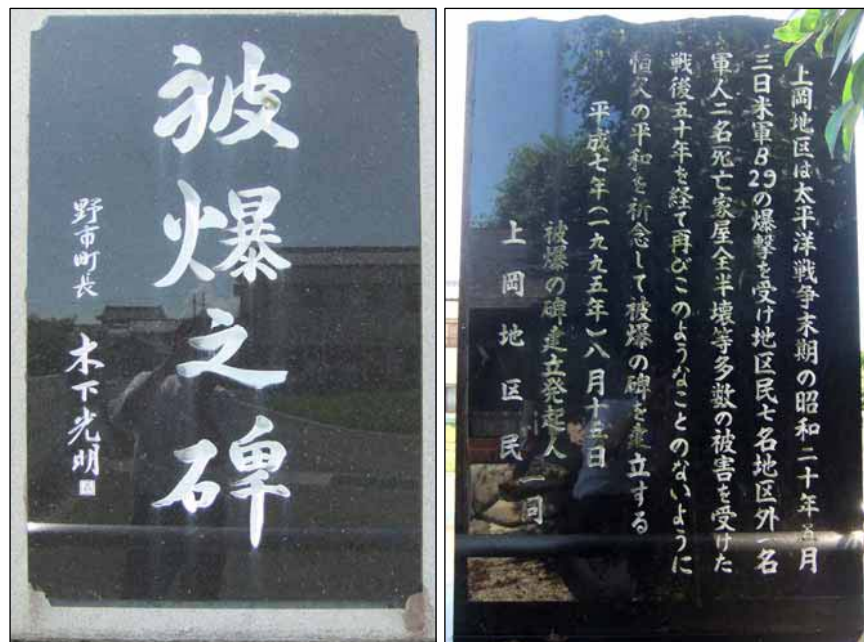 被爆之碑
野市町長 木下光明
上岡地区は太平洋戦争末期の昭和二十年五月
三日米軍B29の爆撃を受け地区民七名地区外一名
軍人二名死亡家屋全半壊等多数の被害を受けた
戦後五十年を経て再びこのようなことのないように
恒久の平和を祈念して被爆の碑を建立する
平成七年(一九九五年)八月十五日
被爆の碑建立発起人
上岡地区民一同